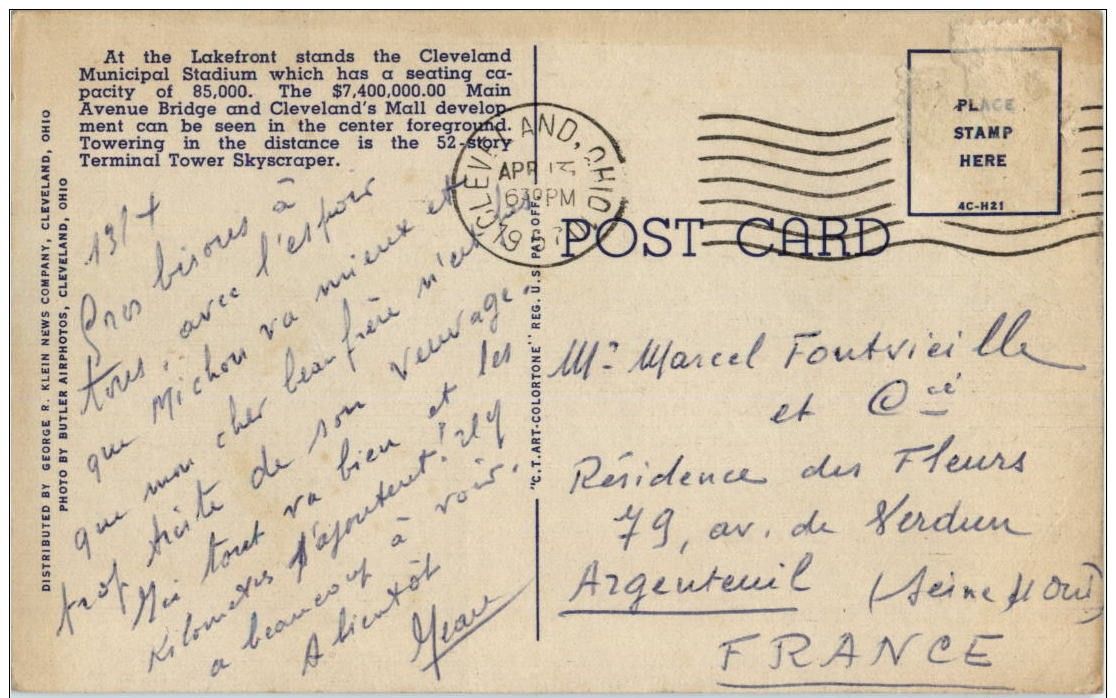 At the Lakefront stands the Cleveland
Municipal Stadium which has a seating ca-
pacity of 85,000. The $7,400,000.00 Main
Avenue Bridge and Cleveland's Mall develop-
ment can be seen in the center foreground.
Towering in the distance is the 52-story
Terminal Tower Skyscraper.
DISTRIBUTED BY GEORGE R. KLEIN NEWS COMPANY, CLEVELAND, OHIO
PHOTO BY BUTLER AIRPHOTOS, CLEVELAND, OHIO
13/4
Gros bisous à
tous, avec l'espoir
que Michou va mieux et
que mon cher beau frère n'est pas
trop triste de son veuvage.
Ici tout va bien et les
kilometres s'ajoutent! Il y
a beaucoup à voir.
A bientôt
Jean
"C.T. ART-COLORTONE" REG. U.S. PAT. OFF.
CLEVELAND, OHIO
APR 13
630PM
POST CARD
PLACE
STAMP
HERE
4C-H21
Mr Marcel Fontvieille
et Cie
Résidence des Fleurs
79, av. de Verdun
Argenteuil (Seine et Oise)
FRANCE